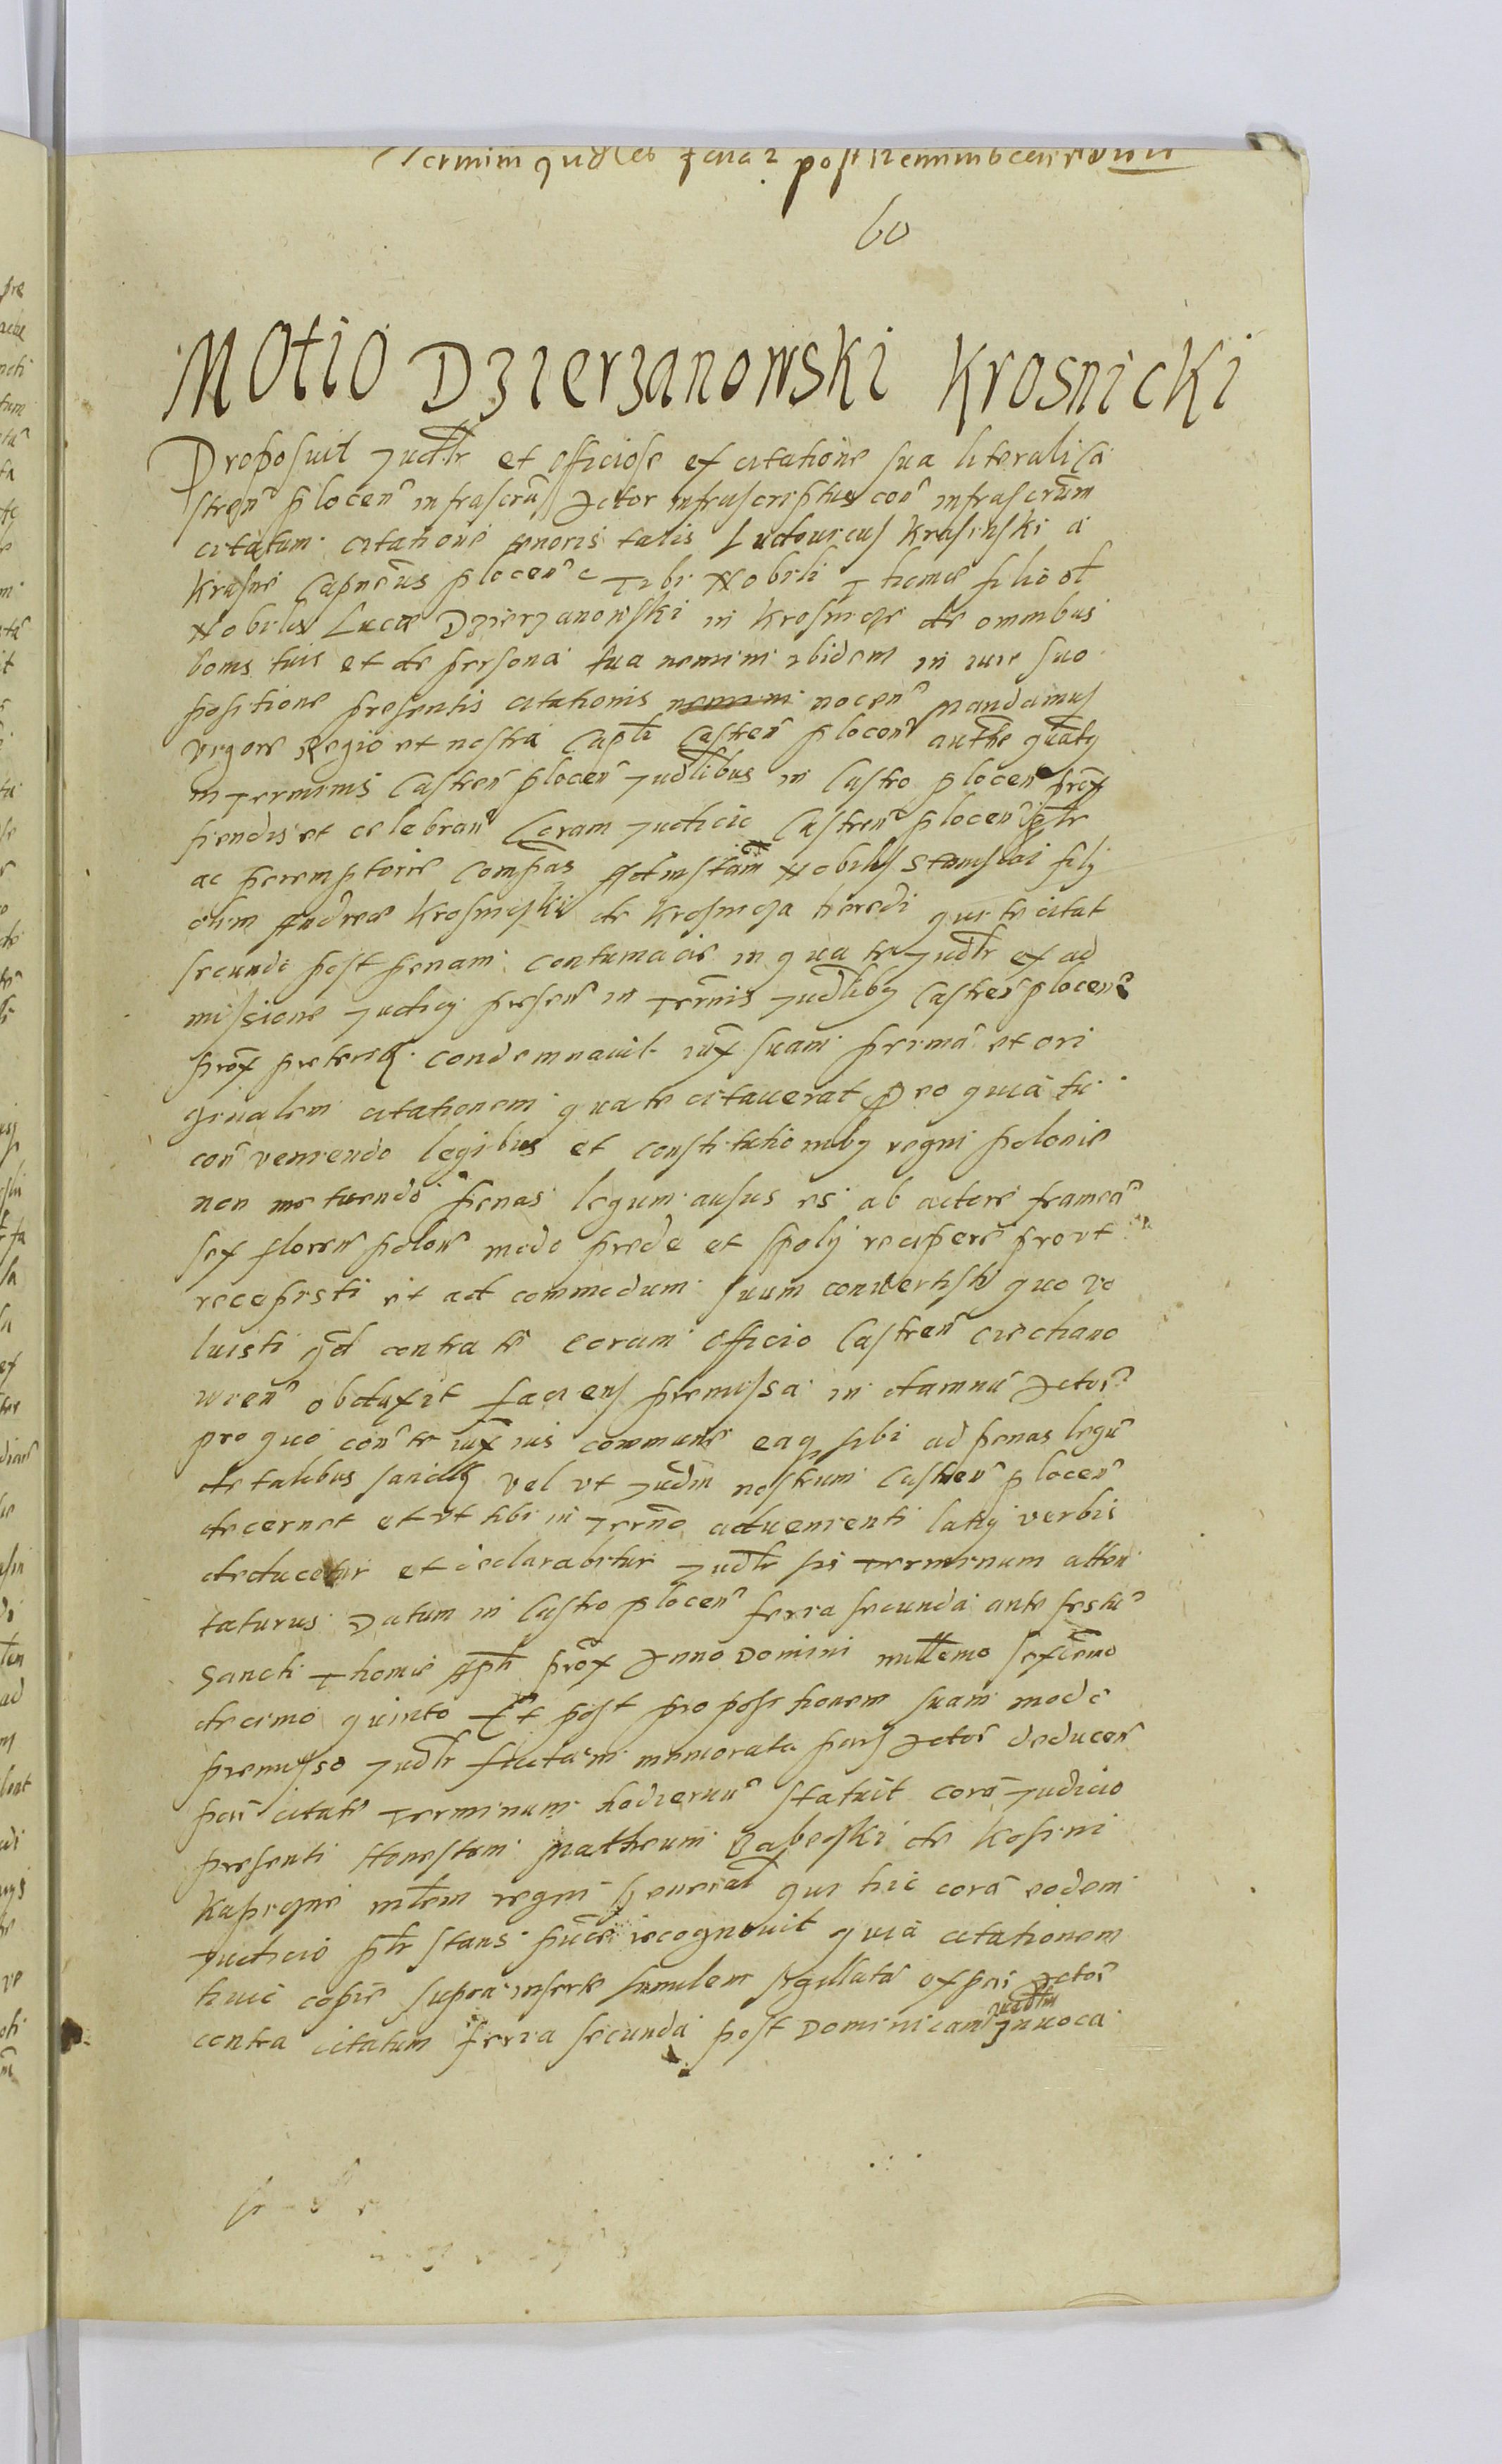 Termini feria 2 post Reminiscere
60
Motio Dzierzanowski Krosnicki
Proposuit Judlr et officiose ex citatione sua literali Ca
stren plocen infrascru Actor infrascriptus con infrascrum
citatum citatione tenoris talis Ludouicus Krasinski a
Krasne Capneus plocen Tibi Nobili Thomae filio ol
Nobilis Lucae Dzierzanowski in Krosnicze de omnibus
bonis tuis et de persona tua nemini ibidem in iure suo
positione presentis citationis nemini nocen Mandamus
vigore Regio et nostra Caplî Castren plocen authe quatq
in Terminis Castren plocen Judlibus in Castro plocen prox
fiendis et celebran Coram Judicio Castren plocen plr
ac peremptorie Compas Ad instam Nobilis Stanislai filij
olim Andreae Krosnicki de Krosnicza heredi qui te citat
secundo post penam contumacie in qua te Judlr ex ad
missione Judicij presen in Terminis Judlibq Castren plocen
prox preteritq condemnauit iux suam prima et ori
ginalem citationem qua te citauerat Pro eo quia tu
con veniendo legibus et constitutionibq regni polonie
non metuendo penas legum ausus es ab actore frameâ
sex floren polon modo prede et spolij recipere prout
recepisti et ad commodum suum conuertisti quo vo
luisti qd contra te coram Officio Castren ciechano
wien obduxit faciens premissa in damnu Actor
pro quo con te iux ius commune eaq sibi ad penas legu
de talibus sancitq vel vt Judm nostrum Castren plocen
decernet et vt tibi in Termo aduenienti latiq verbis
deducetur et declarabitur Judlr sis Terminum atten
taturus Datum in Castro plocen feria secunda ante festu
Sancti Thomae Apli prox Anno Domini millemo sexcemo
decimo quinto Et post propositionem suam modo
premisso Judlr factam memorata pars Actor deducen
pari citate Terminum hodiernu statuit cora Judicio
presenti Honestum Matheum de Kosini
Kapiczne mlem regni general qui hic cora eodem
Judicio plr stans recognouit quia citationem
huic copie supra inserte similem sigillata ex par Actor
contra citatum feria secunda post Dominicam Inuoca